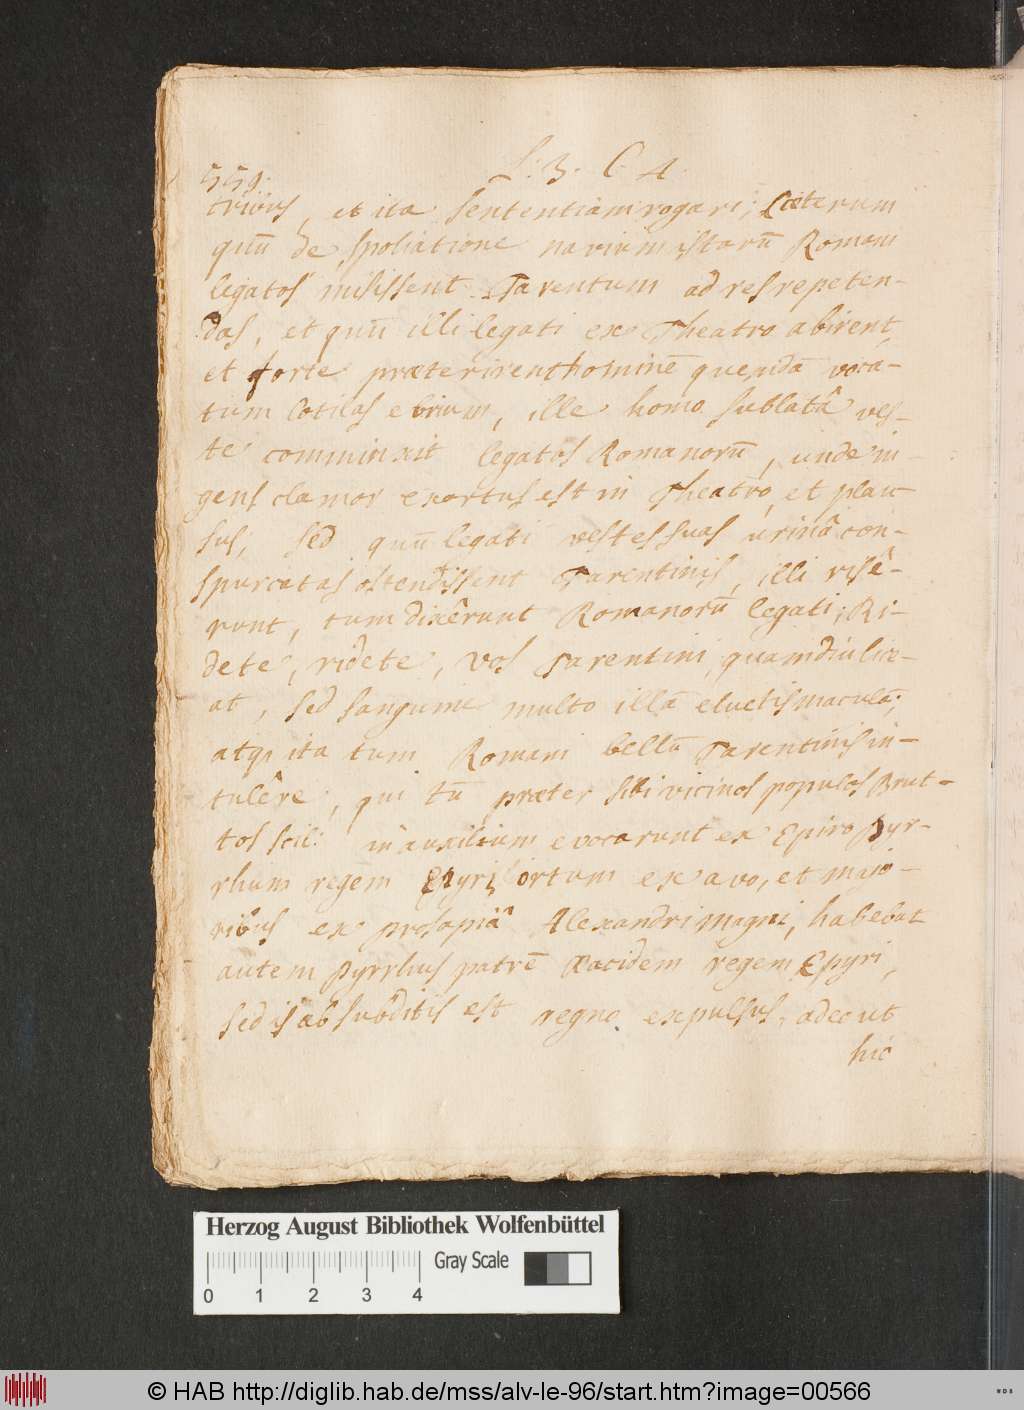 559.
L: 3. C. 4.
tribus, et ita sententiam rogari; Cæterum
quū de spoliatione navium istarū Romani
legatos misissent Tarentum ad res repeten-
das, et quū illi legati ex Theatro abirent,
et forte præterirent hominē quendā voca-
tum Cotilas ebrium, ille homo sublatâ ves-
te comminxit legatos Romanorū, unde in-
gens clamor exortus est in Theatro, et plau-
sus, sed quū legati vestes suas urinâ con-
spurcatas ostendissent Tarentinis, illi risê-
runt, tum dixêrunt Romanorū legati; Ri-
dete, ridete, vos Tarentini quamdiu lice-
at, sed sanguine multo illā eluetis maculā;
atqȝ ita tum Romani bellū Tarentinis in-
tulêre, qui tū præter sibi vicinos populos Brut-
tos scil: in auxilium evocarunt ex Epiro Pyr-
rhum regem Epyri, ortum ex avo, et majo-
ribus ex prosapiâ Alexandri magni, habebat
autem Pyrrhus patrē Æacidem regem Epyri,
sed is ab subditis est regno expulsus, adeo ut
hic
Herzog August Bibliothek Wolfenbüttel
Gray Scale
0 1 2 3 4
© HAB http://diglib.hab.de/mss/alv-le-96/start.htm?image=00566